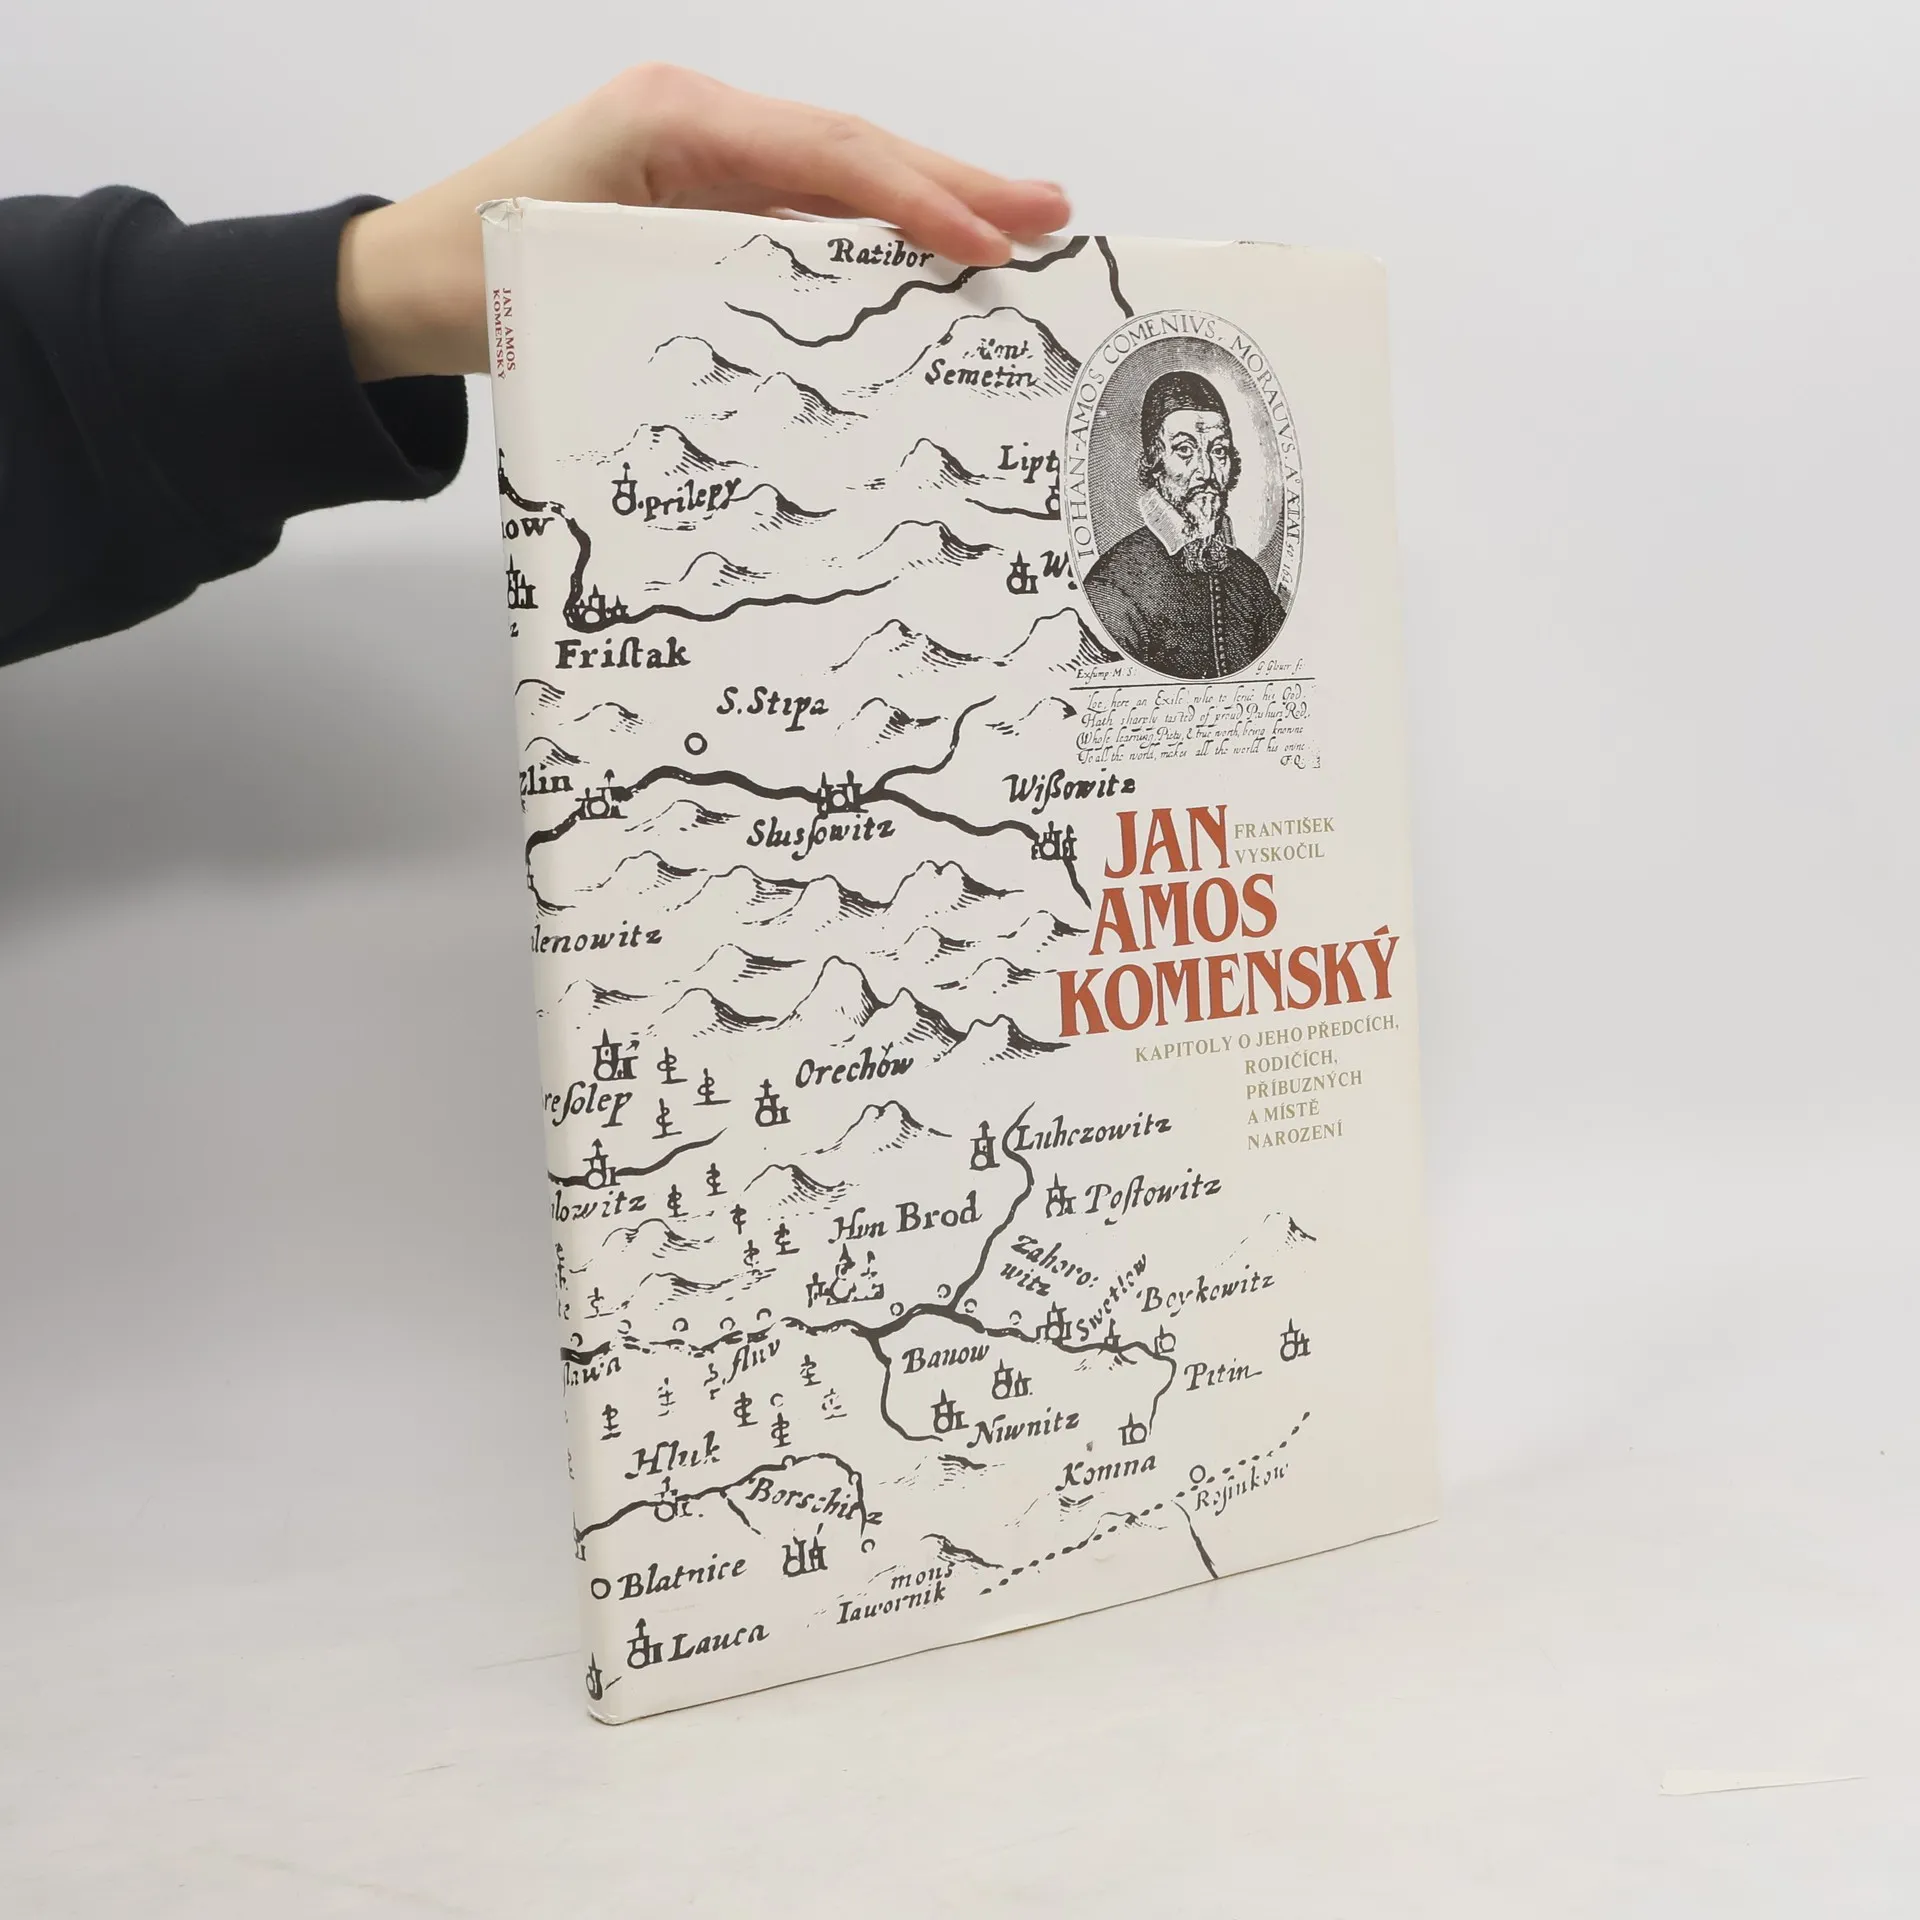 JAN AMOS
KOMENSKÝ
Ratibor
Semetin
IOHAN-AMOS COMENIVS, MORAUVS. A° ÆTAT 50: 1642
prilepy
Lipt
ow
W
Friſtak
S. Stipa
Loe, here an Exile who to serue his God,
Hath sharply tasted of proud Pashurs Rod,
Whose learning, Piety, & true worth, being knowne
To all the world, makes all the world his owne
F.Q:
zlin
Wißowitz
Slusſowitz
JAN
AMOS
KOMENSKÝ
FRANTIŠEK
VYSKOČIL
KAPITOLY O JEHO PŘEDCÍCH,
RODIČÍCH,
PŘÍBUZNÝCH
A MÍSTĚ
NAROZENÍ
lenowitz
Orechów
reſolep
Luhczowitz
lowitz
Poſtowitz
Hun Brod
Zahoro:
witz
Swetlow
Boykowitz
ſlawa
fluv
Banow
Pitin
Niwnitz
Hluk
Komna
Borschitz
Roſinkow
Blatnice
mons
Iawornik
Lauca